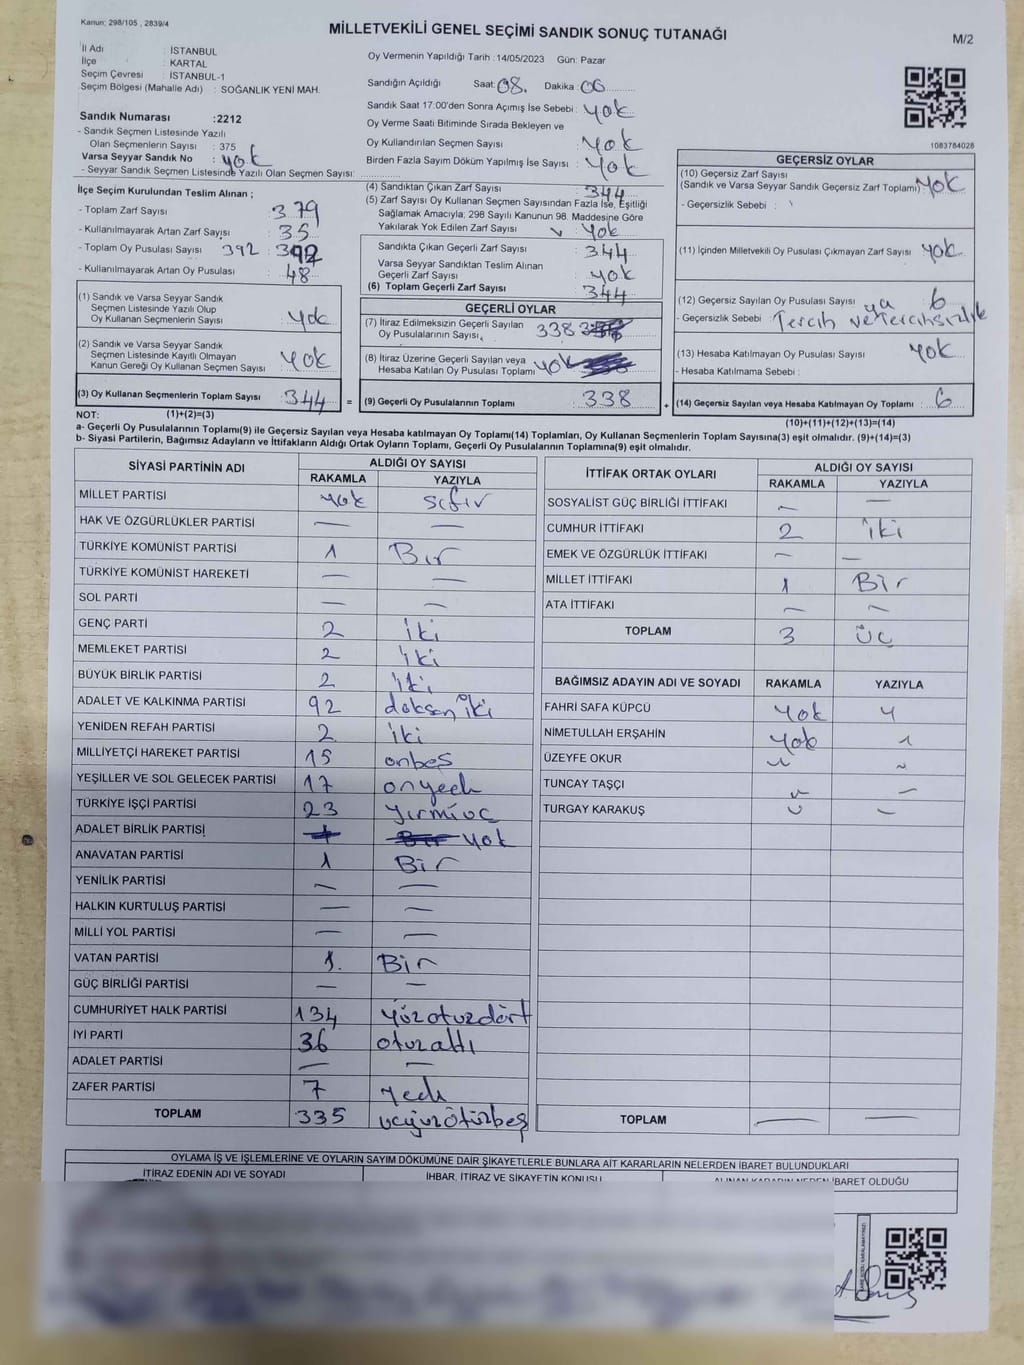 Kanun: 298/105 , 2839/4
MİLLETVEKİLİ GENEL SEÇİMİ SANDIK SONUÇ TUTANAĞI
M/2
İl Adı : İSTANBUL
İlçe : KARTAL
Seçim Çevresi : İSTANBUL-1
Seçim Bölgesi (Mahalle Adı) : SOĞANLIK YENİ MAH.
Oy Vermenin Yapıldığı Tarih : 14/05/2023 Gün: Pazar
Sandığın Açıldığı Saat: 08. Dakika: 06
Sandık Saat 17:00'den Sonra Açımış İse Sebebi : yok
Oy Verme Saati Bitiminde Sırada Bekleyen ve
Oy Kullandırılan Seçmen Sayısı : yok
Birden Fazla Sayım Döküm Yapılmış İse Sayısı : yok
Sandık Numarası :2212
- Sandık Seçmen Listesinde Yazılı
Olan Seçmenlerin Sayısı : 375
Varsa Seyyar Sandık No : yok
- Seyyar Sandık Seçmen Listesinde Yazılı Olan Seçmen Sayısı:
1083784028
İlçe Seçim Kurulundan Teslim Alınan ;
- Toplam Zarf Sayısı : 379
- Kullanılmayarak Artan Zarf Sayısı : 35
- Toplam Oy Pusulası Sayısı 392 : 392
- Kullanılmayarak Artan Oy Pusulası : 48
(1) Sandık ve Varsa Seyyar Sandık
Seçmen Listesinde Yazılı Olup
Oy Kullanan Seçmenlerin Sayısı : yok
(2) Sandık ve Varsa Seyyar Sandık
Seçmen Listesinde Kayıtlı Olmayan
Kanun Gereği Oy Kullanan Seçmen Sayısı : yok
(3) Oy Kullanan Seçmenlerin Toplam Sayısı : 344 =
(4) Sandıktan Çıkan Zarf Sayısı : 344
(5) Zarf Sayısı Oy Kullanan Seçmen Sayısından Fazla İse, Eşitliği
Sağlamak Amacıyla; 298 Sayılı Kanunun 98. Maddesine Göre
Yakılarak Yok Edilen Zarf Sayısı : yok
Sandıkta Çıkan Geçerli Zarf Sayısı : 344
Varsa Seyyar Sandıktan Teslim Alınan
Geçerli Zarf Sayısı : yok
(6) Toplam Geçerli Zarf Sayısı : 344
GEÇERLİ OYLAR
(7) İtiraz Edilmeksizin Geçerli Sayılan
Oy Pusulalarının Sayısı, : 338
(8) İtiraz Üzerine Geçerli Sayılan veya
Hesaba Katılan Oy Pusulası Toplamı : yok
(9) Geçerli Oy Pusulalarının Toplamı : 338 +
GEÇERSİZ OYLAR
(10) Geçersiz Zarf Sayısı
(Sandık ve Varsa Seyyar Sandık Geçersiz Zarf Toplamı) : yok
- Geçersizlik Sebebi :
(11) İçinden Milletvekili Oy Pusulası Çıkmayan Zarf Sayısı : yok
(12) Geçersiz Sayılan Oy Pusulası Sayısı : 6
- Geçersizlik Sebebi : Tercih veya Tercihsizlik
(13) Hesaba Katılmayan Oy Pusulası Sayısı : yok
- Hesaba Katılmama Sebebi :
(14) Geçersiz Sayılan veya Hesaba Katılmayan Oy Toplamı : 6
NOT: (1)+(2)=(3) (10)+(11)+(12)+(13)=(14)
a- Geçerli Oy Pusulalarının Toplamı(9) ile Geçersiz Sayılan veya Hesaba Katılmayan Oy Toplamı(14) Toplamları, Oy Kullanan Seçmenlerin Toplam Sayısına(3) eşit olmalıdır. (9)+(14)=(3)
b- Siyasi Partilerin, Bağımsız Adayların ve İttifakların Aldığı Ortak Oyların Toplamı, Geçerli Oy Pusulalarının Toplamına(9) eşit olmalıdır.
SİYASİ PARTİNİN ADI ALDIĞI OY SAYISI
RAKAMLA YAZIYLA
MİLLET PARTİSİ yok sıfır
HAK VE ÖZGÜRLÜKLER PARTİSİ — —
TÜRKİYE KOMÜNİST PARTİSİ 1 Bir
TÜRKİYE KOMÜNİST HAREKETİ — —
SOL PARTİ — —
GENÇ PARTİ 2 iki
MEMLEKET PARTİSİ 2 iki
BÜYÜK BİRLİK PARTİSİ 2 iki
ADALET VE KALKINMA PARTİSİ 92 doksan iki
YENİDEN REFAH PARTİSİ 2 iki
MİLLİYETÇİ HAREKET PARTİSİ 15 onbeş
YEŞİLLER VE SOL GELECEK PARTİSİ 17 onyedi
TÜRKİYE İŞÇİ PARTİSİ 23 yirmiüç
ADALET BİRLİK PARTİSİ yok
ANAVATAN PARTİSİ 1 Bir
YENİLİK PARTİSİ — —
HALKIN KURTULUŞ PARTİSİ — —
MİLLİ YOL PARTİSİ — —
VATAN PARTİSİ 1. Bir
GÜÇ BİRLİĞİ PARTİSİ — —
CUMHURİYET HALK PARTİSİ 134 yüzotuzdört
İYİ PARTİ 36 otuzaltı
ADALET PARTİSİ — —
ZAFER PARTİSİ 7 yedi
TOPLAM 335 üçyüzotuzbeş
İTTİFAK ORTAK OYLARI ALDIĞI OY SAYISI
RAKAMLA YAZIYLA
SOSYALİST GÜÇ BİRLİĞİ İTTİFAKI — —
CUMHUR İTTİFAKI 2 iki
EMEK VE ÖZGÜRLÜK İTTİFAKI — —
MİLLET İTTİFAKI 1 Bir
ATA İTTİFAKI — —
TOPLAM 3 üç
BAĞIMSIZ ADAYIN ADI VE SOYADI RAKAMLA YAZIYLA
FAHRİ SAFA KÜPCÜ yok
NİMETULLAH ERŞAHİN yok
ÜZEYFE OKUR
TUNCAY TAŞÇI
TURGAY KARAKUŞ
TOPLAM — —
OYLAMA İŞ VE İŞLEMLERİNE VE OYLARIN SAYIM DÖKÜMÜNE DAİR ŞİKAYETLERLE BUNLARA AİT KARARLARIN NELERDEN İBARET BULUNDUKLARI
İTİRAZ EDENİN ADI VE SOYADI İHBAR, İTİRAZ VE ŞİKAYETİN KONUSU ALINAN KARARIN NEDEN İBARET OLDUĞU